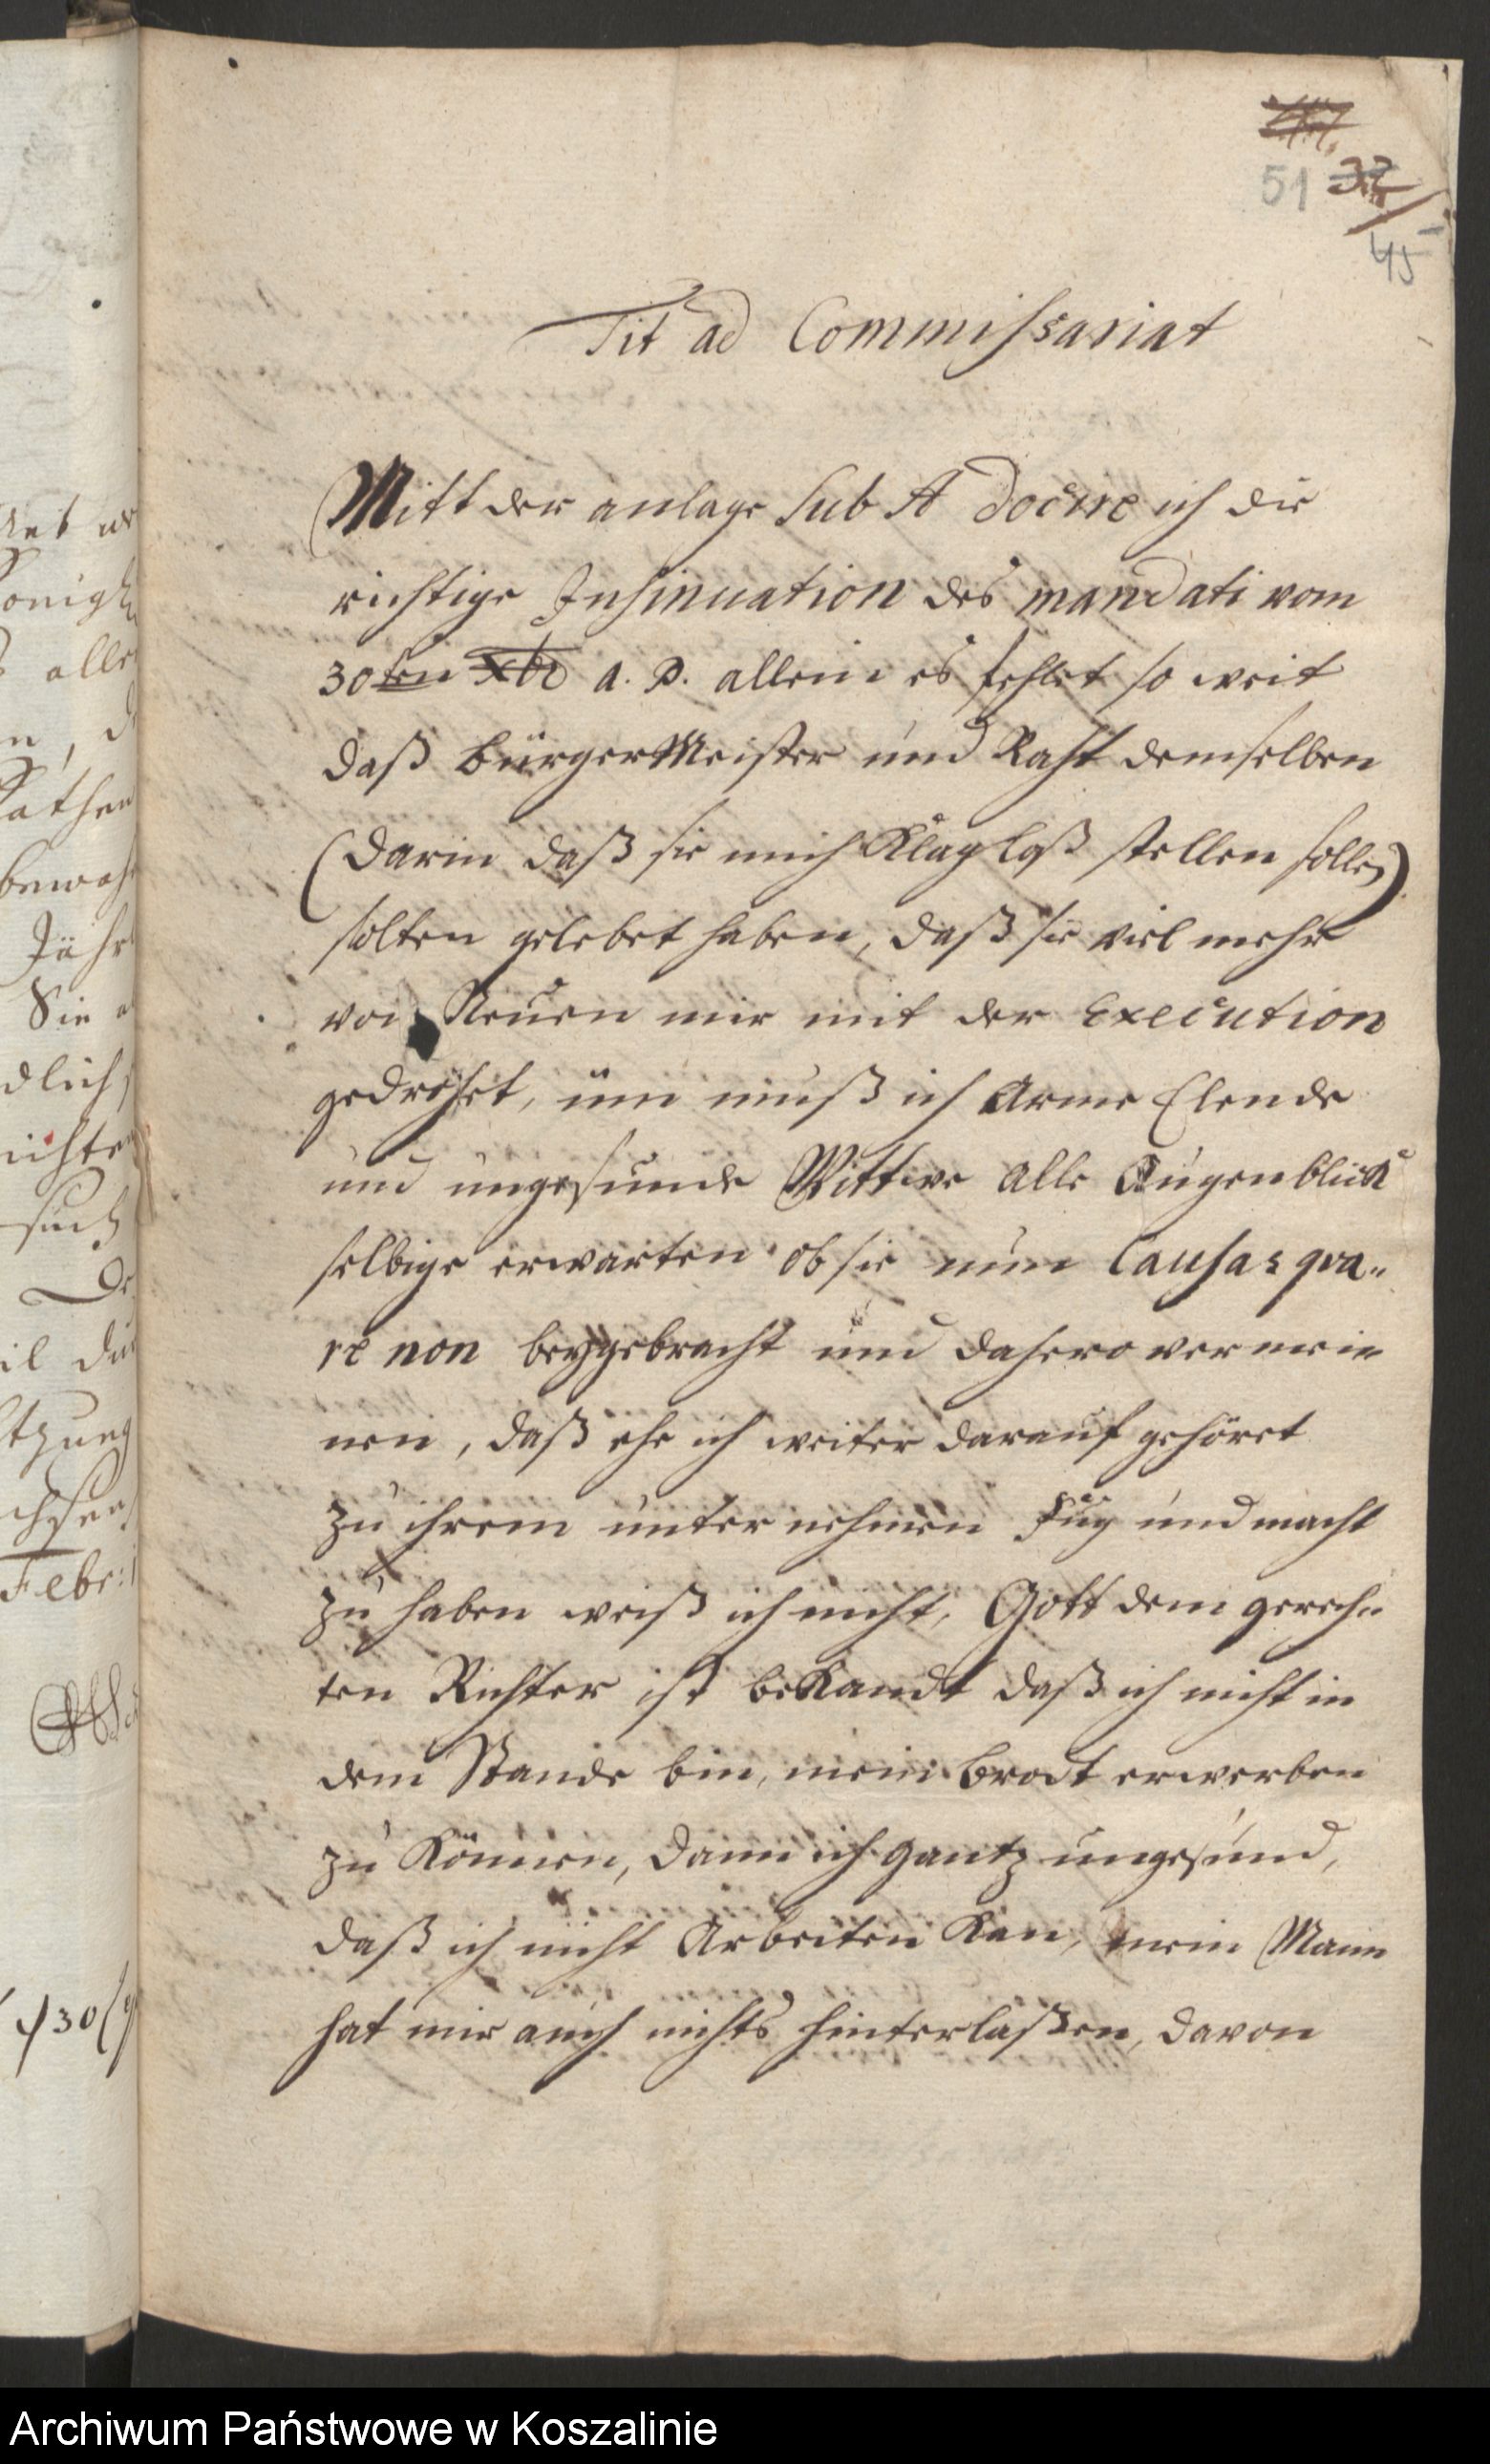 51 32
45
Tit ad Commissariat
Mitt der anlage sub A docire ich die
richtige Insinuation des mandati vom
30ten Xbr a. p. allein es fehlet so weit
daß bürgerMeister und Raht demselben
(darin daß sie mich Klagloß stellen sollen)
solten gelebet haben, daß sie viel mehr
von Neuen mir mit der Execution
gedrohet, und muß ich Arme Elende
und ungesunde Wittwe alle Augenblick
selbige erwarten ob sie nun Causas qva„
re non beygebracht und dahero vermei„
nen, daß ehe ich weiter darauf gehöret
zu ihrem unternehmen fug und macht
zu haben weiß ich nicht, Gott dem gerech„
ten Richter ist bekandt daß ich nicht in
dem Stande bin, mein brodt erwerben
zu Können, dann ich gantz ungesund,
daß ich nicht Arbeiten Kan, mein Mann
hat mir auch nichts hinterlaßen, davon
Febr:
Archiwum Państwowe w Koszalinie